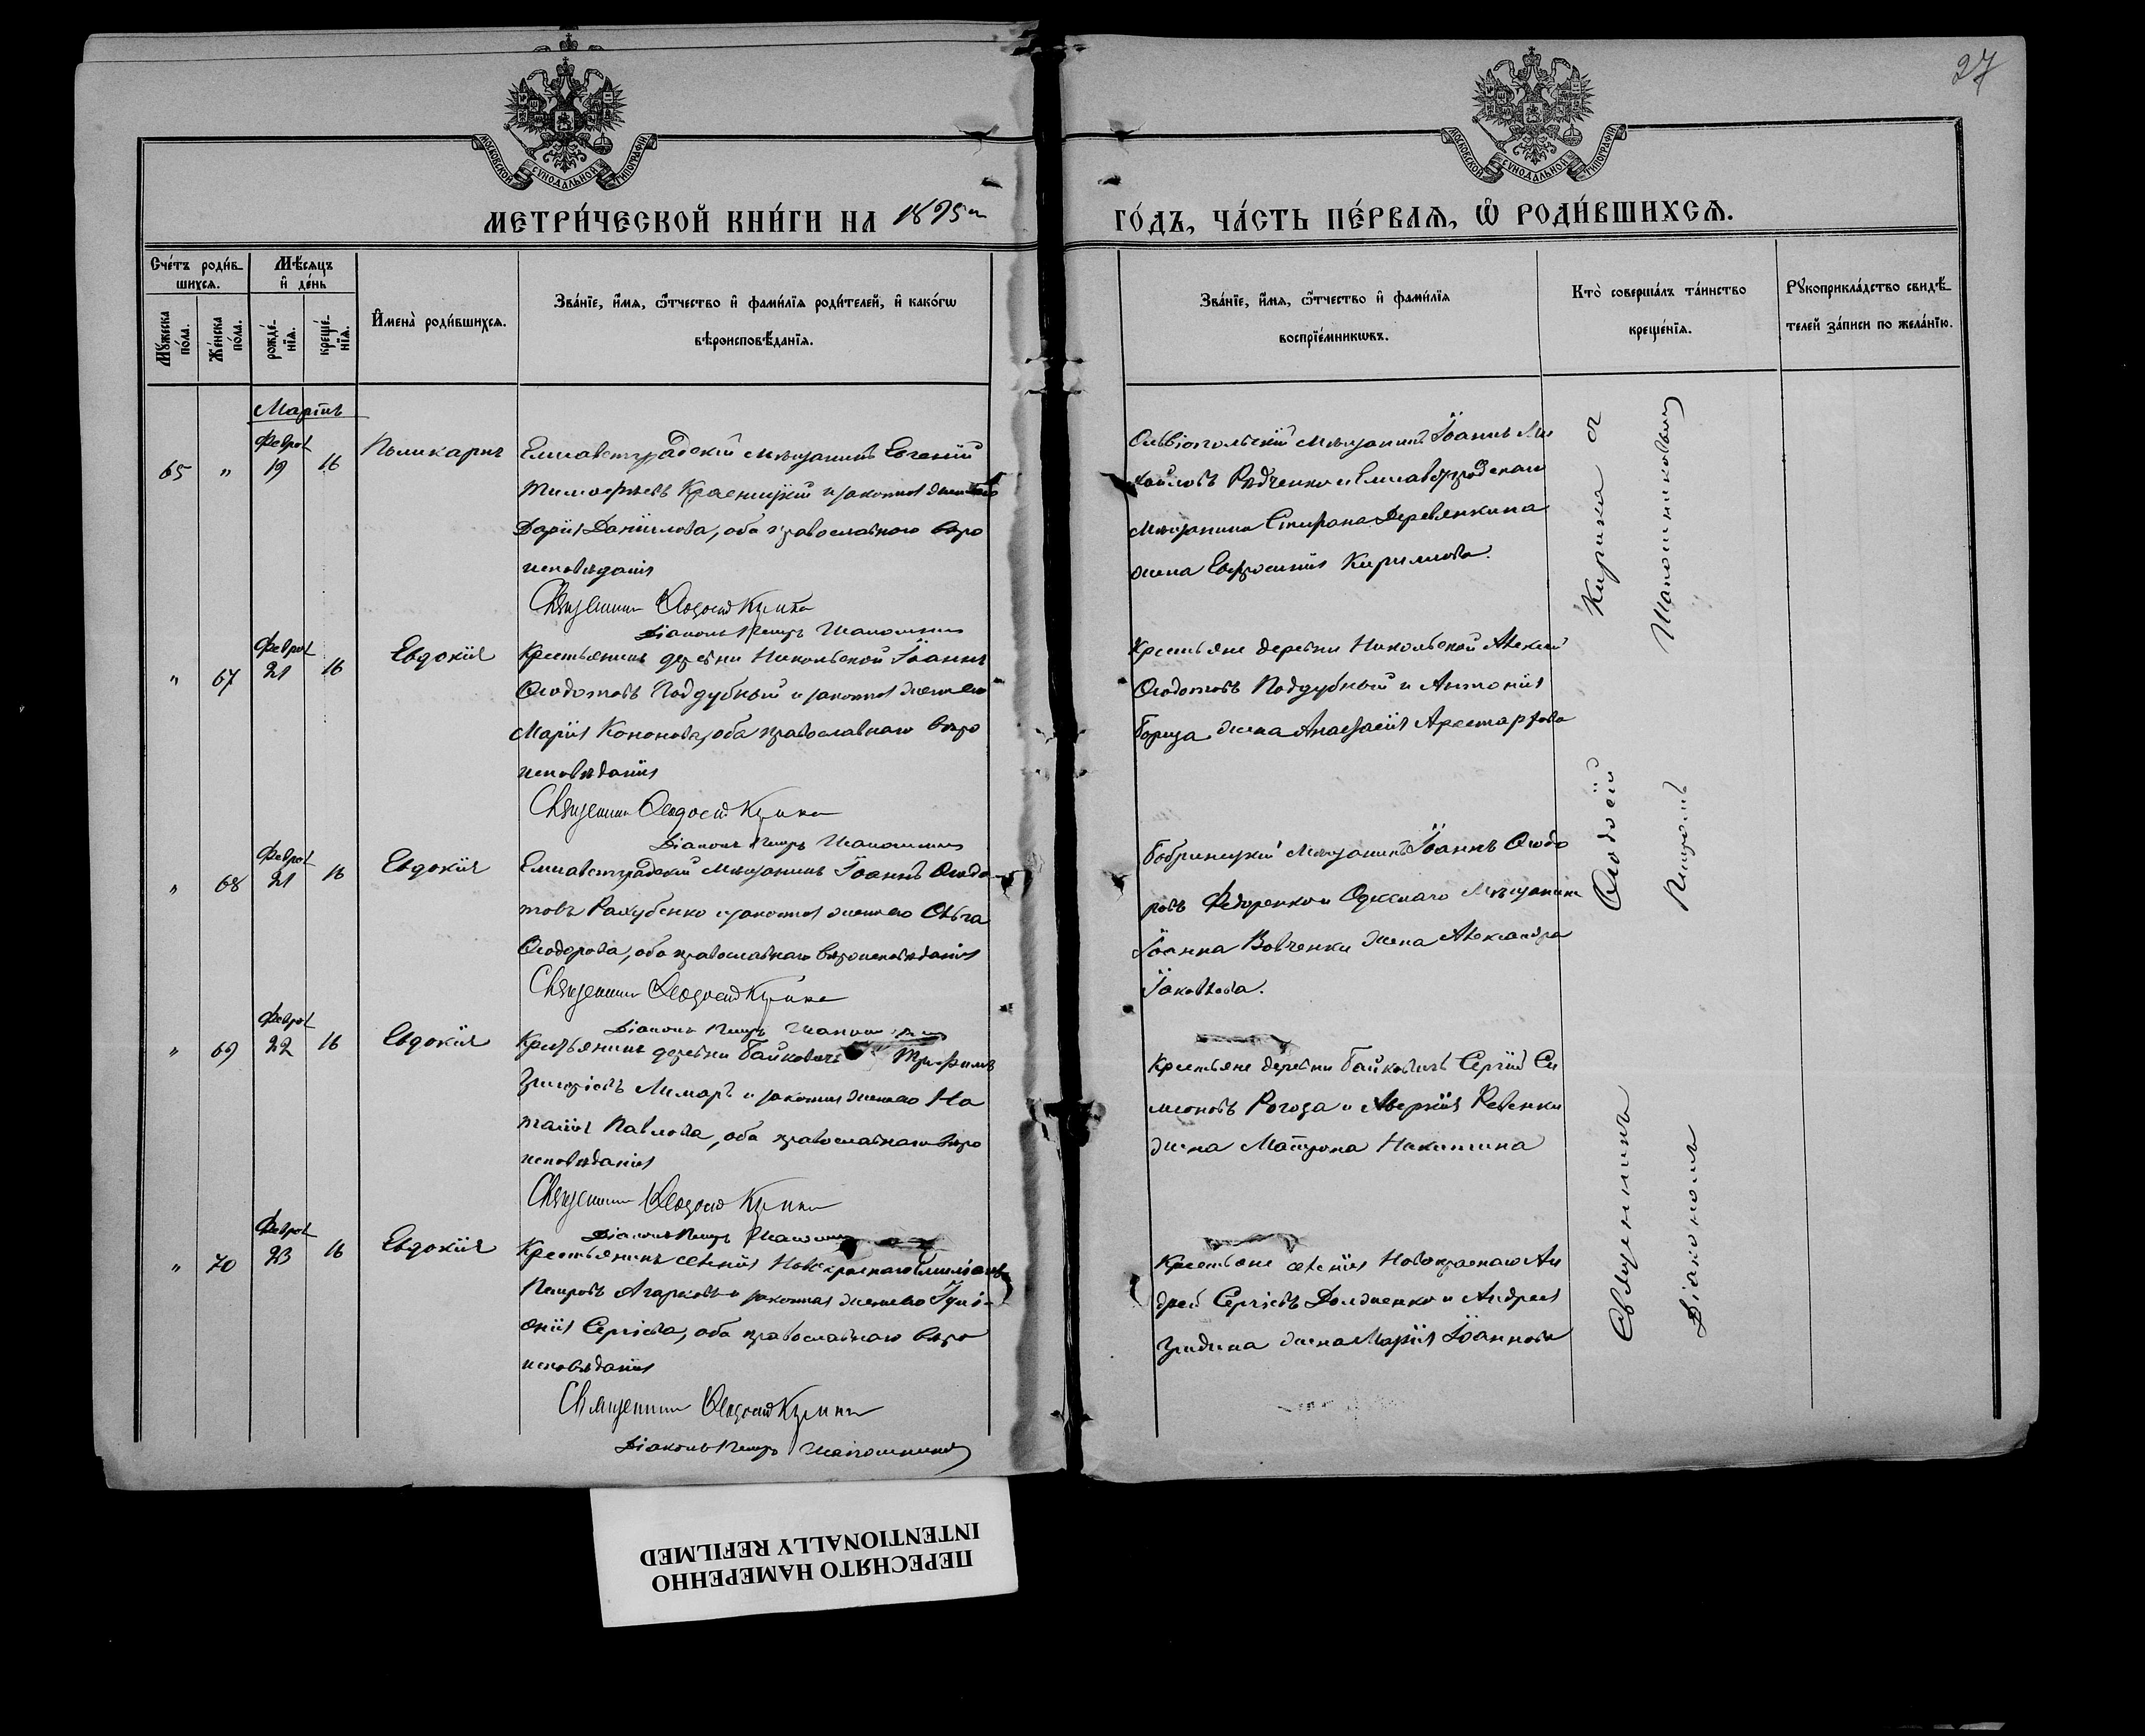 27
МОСКОВСКОЙ СѴНОДАЛЬНОЙ ТИПОГРАФІИ
МОСКОВСКОЙ СѴНОДАЛЬНОЙ ТИПОГРАФІИ
МЕТРИ́ЧЕСКОЙ КНИ́ГИ НА 1895 го́дъ, ча́сть пе́рваѧ, ѡ҆ роди́вшихсѧ.
Сче́тъ роди́вшихсѧ.
Мѣ́сѧцъ и҆ де́нь
Мꙋ́жеска по́ла.
Же́нска по́ла.
рожде́нїѧ.
креще́нїѧ.
И҆мена̀ роди́вшихсѧ.
Зва́нїе, и҆́мѧ, ѻ҆́тчество и҆ фами́лїѧ роди́телей, и҆ како́гѡ
вѣроисповѣ́данїѧ.
Зва́нїе, и҆́мѧ, ѻ҆́тчество и҆ фами́лїѧ
воспрїе́мникѡвъ.
Кто̀ соверша́лъ та́инство
креще́нїѧ.
Рꙋкоприкла́дство свидѣ́-
телей за́писи по жела́нїю.
Мартъ
65 " Феврал 19 16 Поликарпъ
Елисаветградскій мѣщанинъ Евгеній
Тимофѣевъ Красницкій и законная жена его
Дарія Даніилова, оба православнаго вѣро
исповѣданія
Священникъ Ѳеодосій
Діаконъ Петръ Шапошниковъ
Ольвіопольскій мѣщанинъ Іоаннъ Ми
хайловъ Рядченко и Елисаветградскаго
мѣщанина Стефана Деревянкина
жена Евфросинія Кириллова.
" 67 Феврал 21 16 Евдокія
Крестьянинъ деревни Никольской Іоаннъ
Ѳеодотовъ Поддубный и законная жена его
Марія Кононова, оба православнаго вѣро
исповѣданія
Священникъ Ѳеодосій
Діаконъ Петръ Шапошниковъ
Крестьяне деревни Никольской Алексій
Ѳеодотовъ Поддубный и Антонія
жена Анастасія
" 68 Феврал 21 16 Евдокія
Елисаветградскій мѣщанинъ Іоаннъ Ѳеодо
товъ и законная жена его Ольга
Ѳеодорова, оба православнаго вѣроисповѣданія
Священникъ Ѳеодосій
Діаконъ Петръ Шапошниковъ
Бобринецкій мѣщанинъ Іоаннъ Ѳеодо
ровъ Федоренко и Одесскаго мѣщанина
Іоанна Вовченки жена Александра
Іаковлева.
" 69 Феврал 22 16 Евдокія
Крестьянинъ деревни Байковичъ Трофимъ
Григоріевъ Лимаръ и законная жена его На
талія Павлова, оба православнаго вѣро
исповѣданія
Священникъ Ѳеодосій
Діаконъ Петръ
Крестьяне деревни Байковичъ Сергій Си
меоновъ Рогоза и Аверкія Ревенки
жена Матрона Никитина
" 70 Феврал 23 16 Евдокія
Крестьянинъ селенія Новокраснаго
Петровъ Агарковъ и законная жена его Іуліа
нія Сергіева, оба православнаго вѣро
исповѣданія
Священникъ Ѳеодосій
Діаконъ Петръ Шапошниковъ
Крестьяне селенія Новокраснаго Ан
дрей Сергіевъ Долженко и Андрея
Гридина жена Марія Іоаннова
Священникъ Ѳеодосій
Діакономъ Петромъ Шапошниковымъ
ПЕРЕСНЯТО НАМЕРЕННО
INTENTIONALLY REFILMED